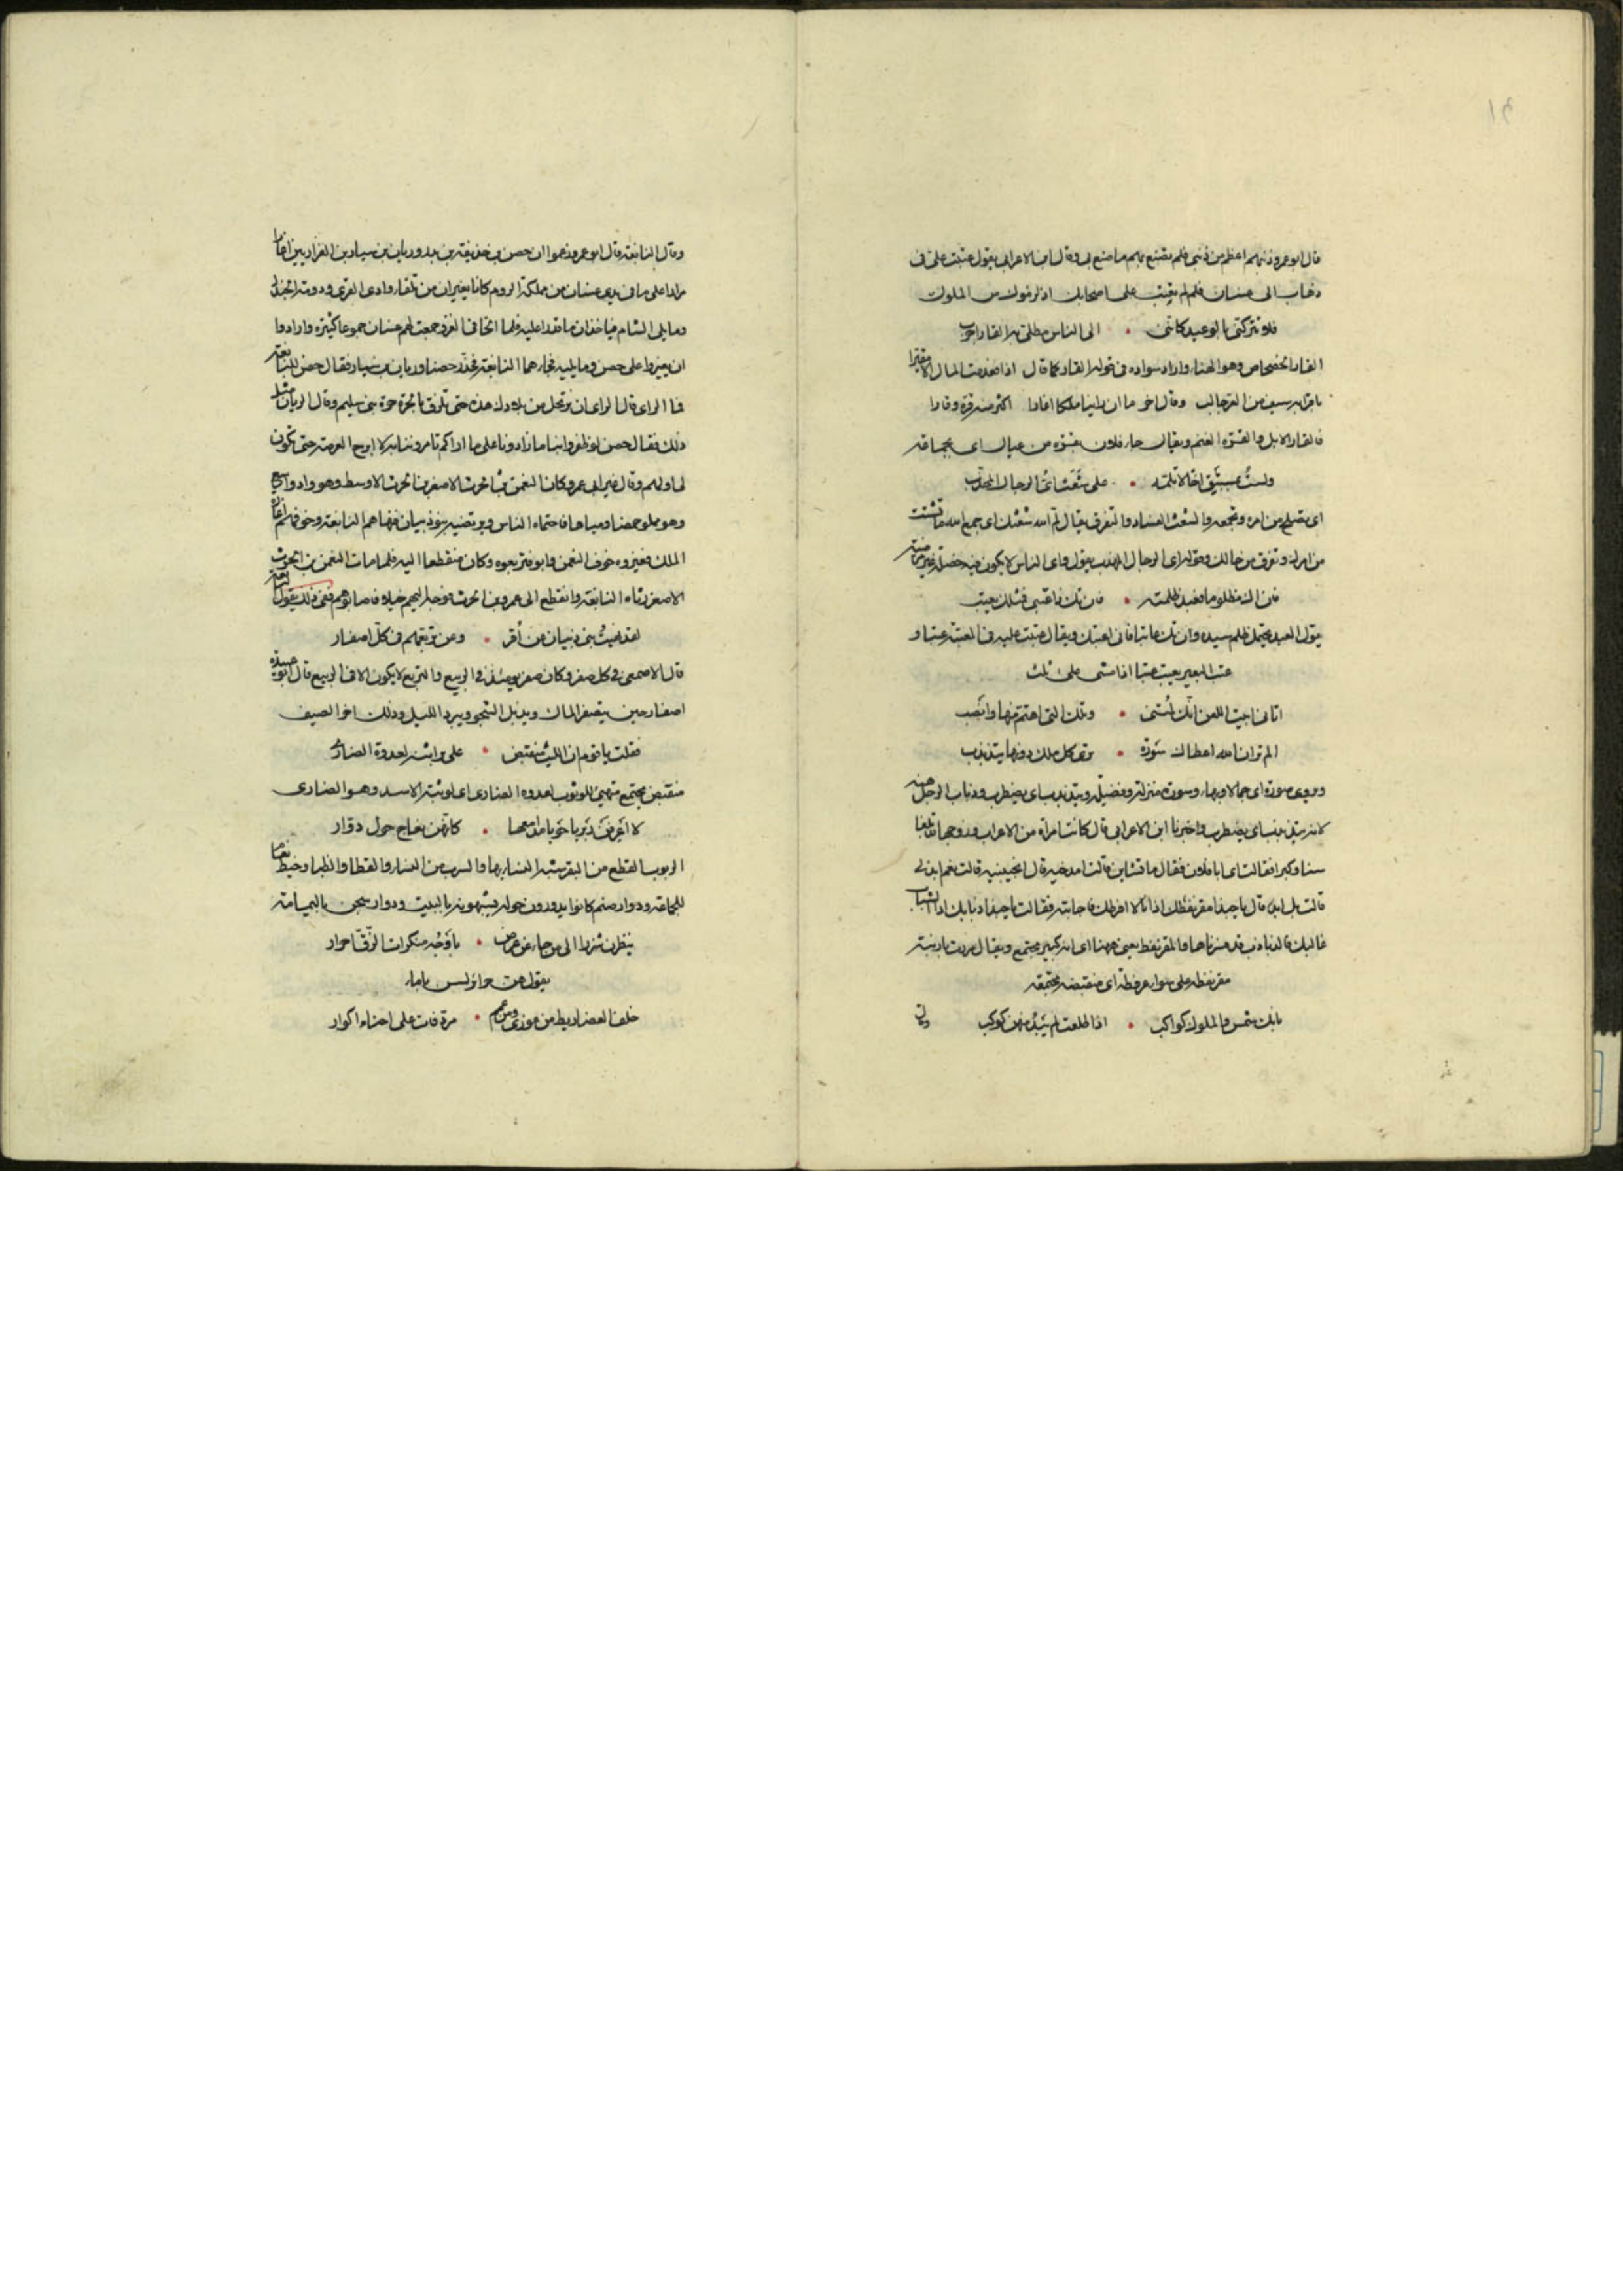 قال ابو عمرو ذنبهم اعظم من ذنبي فلم تصنع بهم ما صنع بي وقال ابن الاعرابي يقول عتبت علي في
ذهاب الى غسان فلم لم تعتب على اصحابك اذ لزموك من الملوك
فلا تتركني بالوعيد كانني • الى الناس مطلي به القار اجرب
القار الخضخاض وهو الهناء واراد سواده في قوله القار كما قال اذا
وقال اخر ما ان راينا ملكا اغارا اكثر منه قرة وقارا
فالقار الابل والقرة الغنم ويقال جاء فلان من عيال اي جماعة
ولست بمستبق اخا لا تلمه • على شعث اي الرجال المهذب
اي تصلح من امره وتجمعه والشعث الفساد والتفرق يقال لم الله شعثك اي جمع الله ما تشتت
من امرك وتفرق من حالك وقوله اي الرجال المهذب يقول واي الناس لا يكون فيه خصلة غير
فان اك مظلوما فعبد ظلمته • فان تك ذا عتبى فمثلك يعتب
يقول العبد يحتمل ظلم سيده وان تك عاتبا فاني اعتبك ويقال عتبت عليه في المعتبة عتبا و
عتب البعير يعتب عتبا اذا مشى على ثلث
اتاني ابيت اللعن انك لمتني • وتلك التي اهتم منها وانصب
الم تر ان الله اعطاك سورة • ترى كل ملك دونها يتذبذب
ويروى صورة اي جمالا وبهاء وسورة منزلة وفضيلة ويتذبذب اي يضطرب وذباب الرجل منه
لانه يتذبذب اي يضطرب واخبرنا ابن الاعرابي قال كانت امراة من الاعراب وزوجها قد بلغا
سنا وكبرا فقالت اي ابا فلان فقال ما تشاين قالت امدخيه قال
قالت بل ابدا قال يا حبذا مقرنفطك اذ انا لا افرطك فاجابته فقالت يا حبذا ذباذبك اذ الشباب
غالبك فالذباذب قد فسرناها والمقرنفط يعني ههنا اي انه كبير مجتمع ويقال مررت بارنبة
مقرنفطة على سواء عرفطة اي منقبضة مجتمعة
بانك شمس والملوك كواكب • اذا طلعت لم يبد منهن كوكب
وقال
وقال النابغة قال ابو عمرو زعموا ان حصن بن حذيفة بن بدر وزبان بن سيار بن الفزاريين اغارا
مرارا على ما في يدي غسان من مملكة الروم كانا يغيران من تلقاء وادي القرى ودومة الجندل
وما يلي الشام فياخذان ما قدرا عليه فلما الغزو جمعت لهم غسان جموعا كثيرة وارادوا
ان يغيروا على حصن وما يليه فجاءهما النابغة فحذر حصنا وزبان بن سيار فقال حصن للنابغة
فما الراي قال الراي ان ترتحل من بلادك هذه حتى تلزق بالحرة حرة بني سليم وقال الزبان مثل
ذلك فقال حصن لو ظفروا بنا ما زادونا على ما اراكم تامروننا به لا ابرح العرصة حتى تكون
لنا ولهم وقال غير ابي عمرو كان النعمن بن الحرث الاصغر بن الحرث الاوسط وهو واد واسع
وهو مملو حمضا ومياها فاحتماه الناس وبنو ذبيان فنهاهم النابغة وخوفهم اغارة
الملك فعيروه خوف النعمن وابو فتربعوه وكان منقطعا اليه فلما مات النعمن بن الحرث
الاصغر رثاه النابغة وانقطع الى عمرو بن الحرث فوجه اليهم خيلا فاصابوهم ففي ذلك يقول النابغة
لقد نهيت بني ذبيان عن اقر • وعن تربعهم في كل اصفار
قال الاصمعي في كل صفر وكان صفر يومئذ في الربيع والتربع لا يكون الا في الربيع قال ابو عبيدة
اصفار حين يتصفر المال ويذبل الشجر ويبرد الليل وذلك اخر الصيف
فقلت يا قوم ان الليث منقبض • على براثنه لعدوة الضاري
منقبض مجتمع متهيئ للوثوب لعدوه الضاري اي لوثبة الاسد وهو الضاري
لا اعرفن ربربا حورا مدامعها • كانهن نعاج حول دوار
الربرب القطع من البقر شبه النساء بها والسرب من النساء والقطا والظباء وخيط نعام
للجماعة ودوار صنم كانوا يدورون حوله يشبهونه بالبيت ودوار سجن باليمامة
ينظرن شزرا الى من جاء عن عرض • باوجه منكرات الرق احرار
يقول هن حرائر لسن باماء
خلف العضاريط من عوذي ومن عمم • مردفات على احناء اكوار